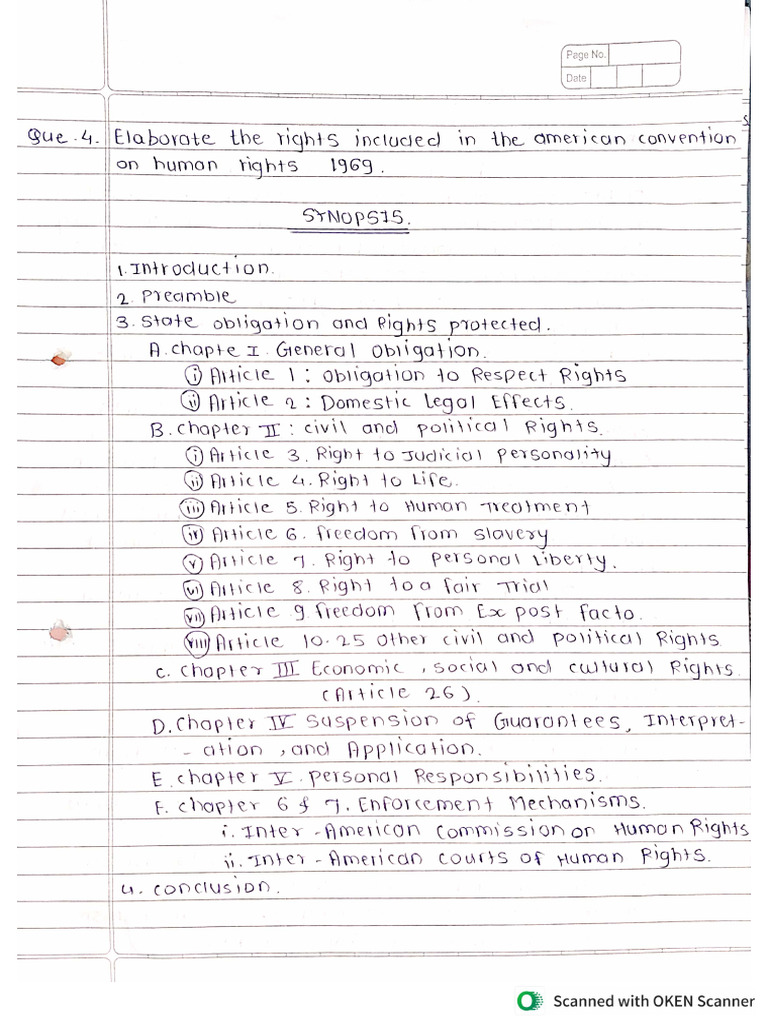 Page No.
Date
Que.4. Elaborate the rights included in the american convention
on human rights 1969.
SYNOPSIS.
1. Introduction.
2. Preamble
3. State obligation and Rights protected.
A. chapte I. General obligation.
(i) Article 1: obligation to Respect Rights
(ii) Article 2: Domestic Legal Effects.
B. chapter II: civil and political Rights.
(i) Article 3. Right to Judicial personality
(ii) Article 4. Right to Life.
(iii) Article 5. Right to Human Treatment
(iv) Article 6. freedom from slavery
(v) Article 7. Right to personal Liberty.
(vi) Article 8. Right to a fair Trial
(vii) Article 9 freedom from Ex post facto.
(viii) Article 10-25 other civil and political Rights
C. Chapter III Economic, social and cultural Rights.
(Article 26).
D. Chapter IV Suspension of Guarantees, Interpret-
-ation, and Application.
E. chapter V. personal Responsibilities.
F. chapter 6 & 7. Enforcement Mechanisms.
i. Inter-American Commission on Human Rights
ii. Inter-American courts of Human Rights.
4. conclusion.
Scanned with OKEN Scanner